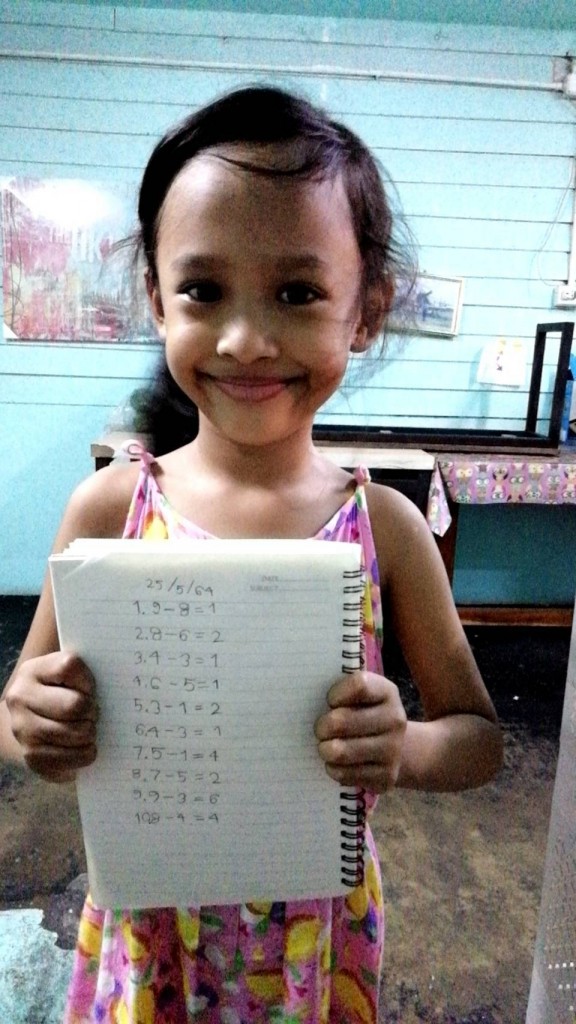 25/5/64
1. 9-8=1
2. 8-6=2
3. 4-3=1
4. 6-5=1
5. 3-1=2
6. 4-3=1
7. 5-1=4
8. 7-5=2
9. 9-3=6
10. 8-4=4